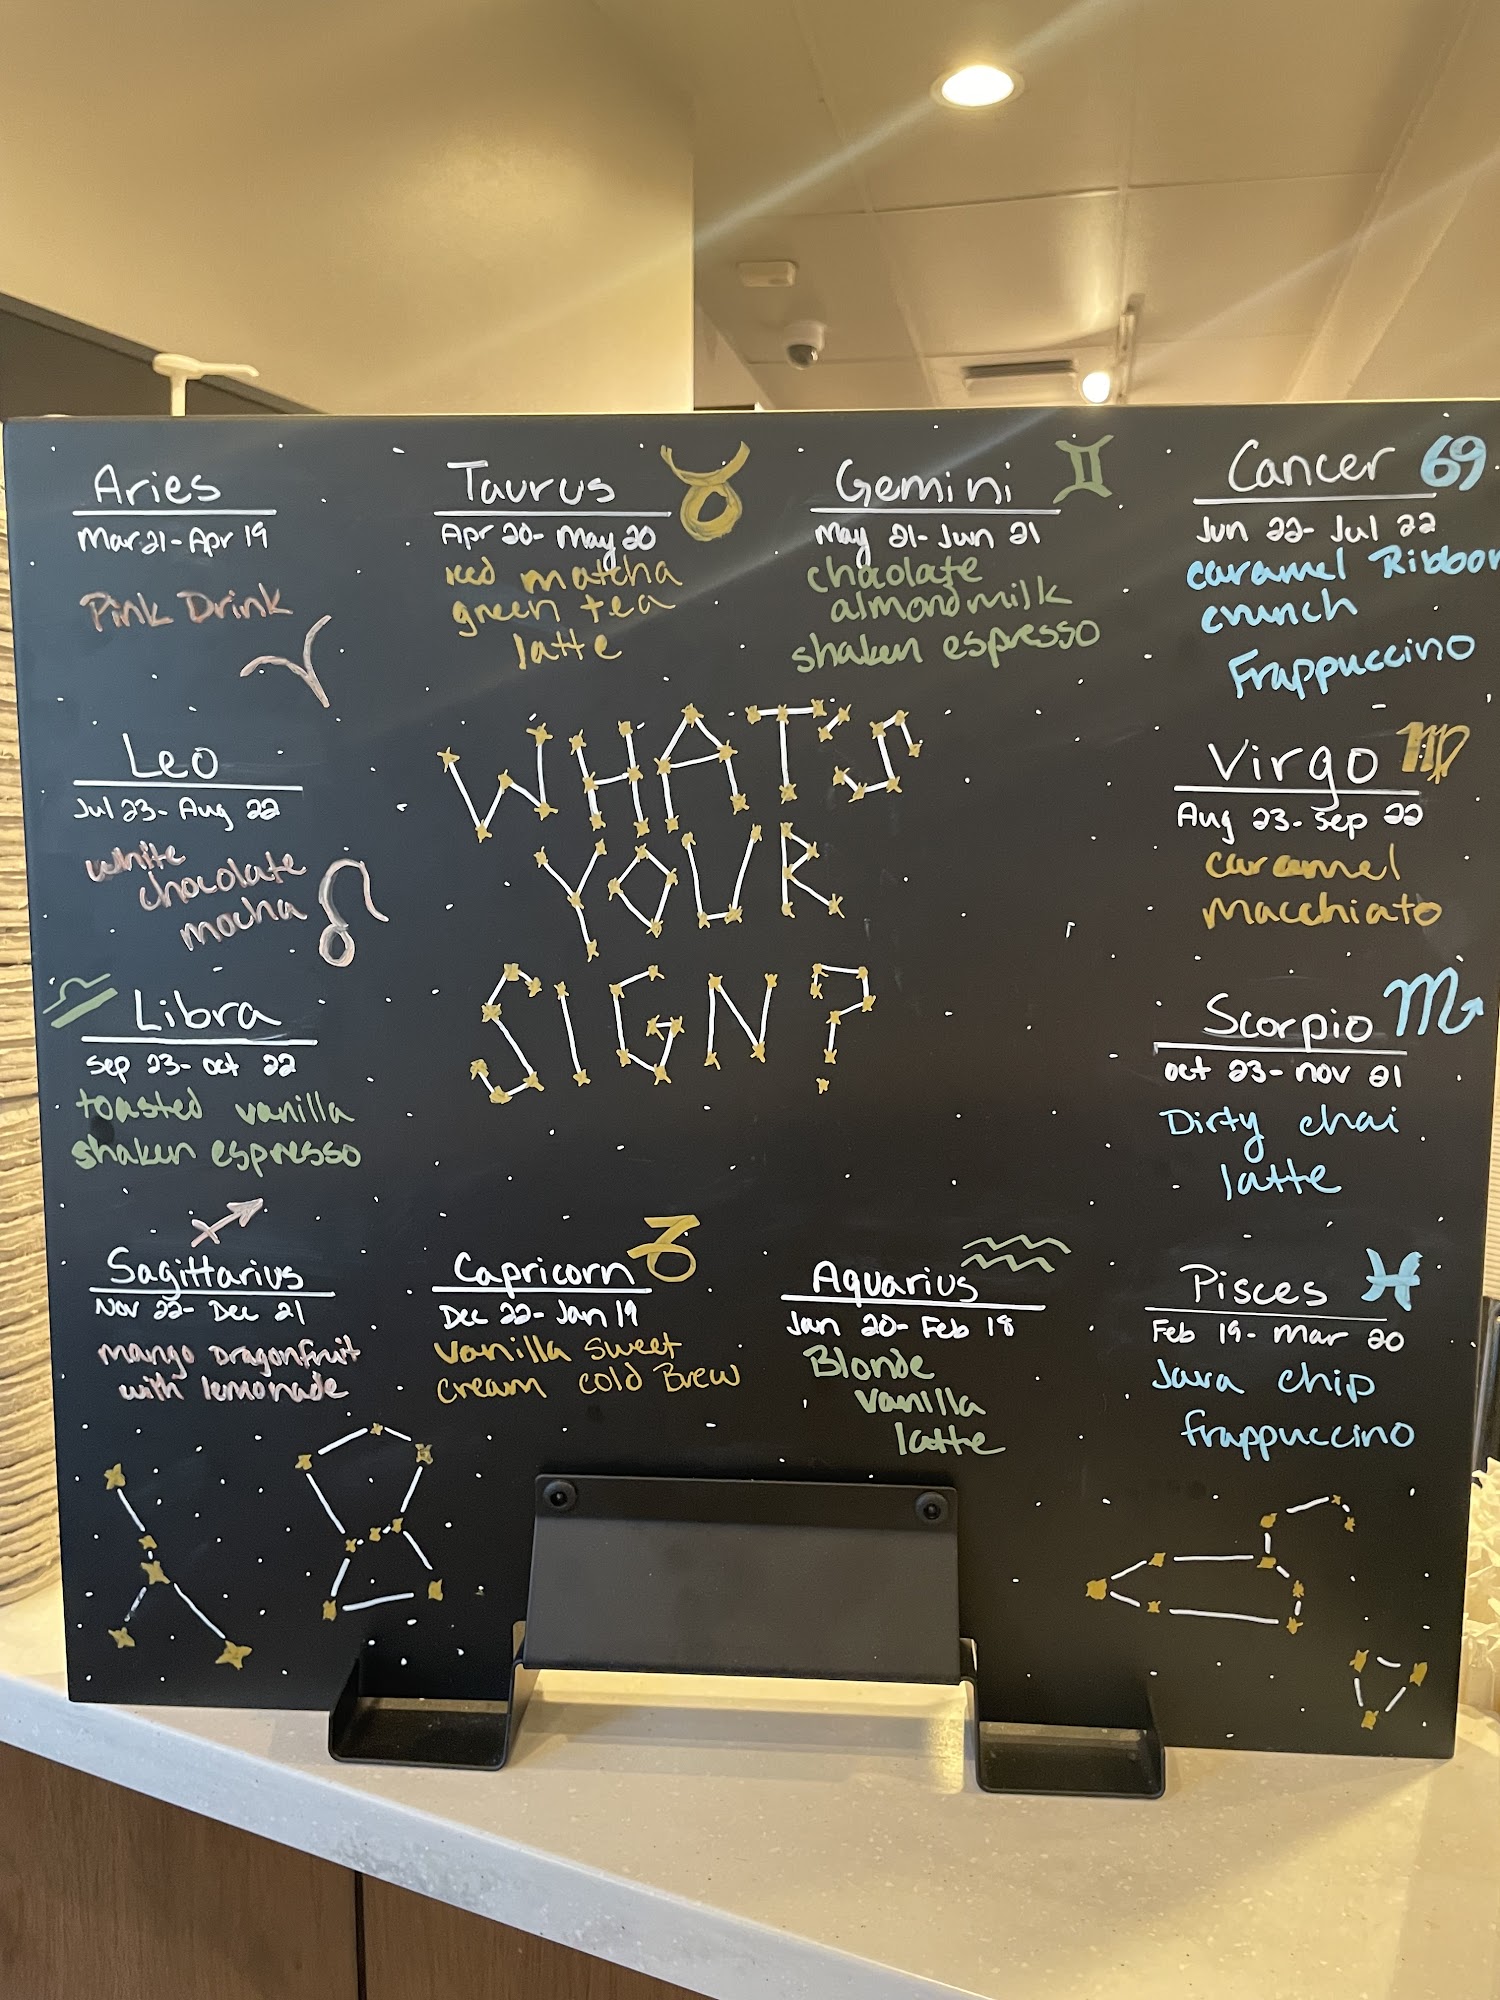 Aries
Mar 21 - Apr 19
Pink Drink
Taurus
Apr 20 - May 20
iced matcha
green tea
latte
Gemini
May 21 - Jun 21
chocolate
almondmilk
shaken espresso
Cancer
Jun 22 - Jul 22
caramel Ribbon
crunch
Frappuccino
WHAT'S
YOUR
SIGN?
Leo
Jul 23 - Aug 22
white
chocolate
mocha
Virgo
Aug 23 - Sep 22
caramel
Macchiato
Libra
Sep 23 - oct 22
toasted vanilla
shaken espresso
Scorpio
oct 23 - nov 21
Dirty chai
latte
Sagittarius
Nov 22 - Dec 21
mango Dragonfruit
with lemonade
Capricorn
Dec 22 - Jan 19
vanilla sweet
cream cold Brew
Aquarius
Jan 20 - Feb 18
Blonde
vanilla
latte
Pisces
Feb 19 - Mar 20
Java chip
frappuccino